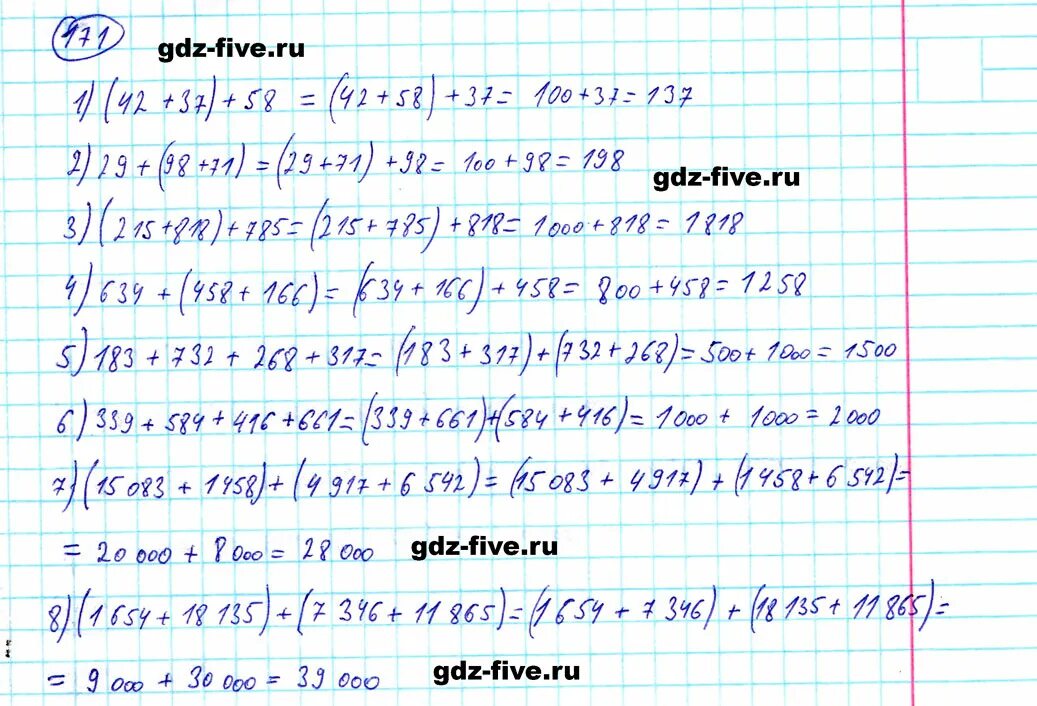 171
gdz-five.ru
1) (42 + 37) + 58 = (42 + 58) + 37 = 100 + 37 = 137
2) 29 + (98 + 71) = (29 + 71) + 98 = 100 + 98 = 198
gdz-five.ru
3) (215 + 818) + 785 = (215 + 785) + 818 = 1000 + 818 = 1818
4) 634 + (458 + 166) = (634 + 166) + 458 = 800 + 458 = 1258
5) 183 + 732 + 268 + 317 = (183 + 317) + (732 + 268) = 500 + 1000 = 1500
6) 339 + 584 + 416 + 661 = (339 + 661) + (584 + 416) = 1000 + 1000 = 2000
7) (15 083 + 1458) + (4 917 + 6 542) = (15 083 + 4 917) + (1 458 + 6 542) =
= 20 000 + 8 000 = 28 000
gdz-five.ru
8) (1 654 + 18 135) + (7 346 + 11 865) = (1 654 + 7 346) + (18 135 + 11 865) =
= 9 000 + 30 000 = 39 000
gdz-five.ru